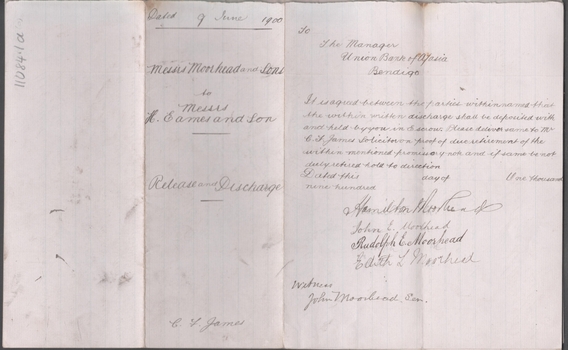 11084.1a
Dated 9 June 1900
Messrs Moorhead and Sons
to
Messrs
H. Eames and Son
Release and Discharge
C. F. James
To
The Manager
Union Bank of A/sia
Bendigo
It is agreed between the parties within named that
the within written discharge shall be deposited with
and held by you in Escrow. Please deliver same to Mr
C. F. James Solicitor on proof of due retirement of the
within mentioned promissory note and if same to not
duly retired hold to direction
Dated this day of One thousand
nine hundred
Hamilton Moorhead
John E. Moorhead
Rudolph E. Moorhead
Edith L Moorhead
Witness
John Moorhead. Sen.